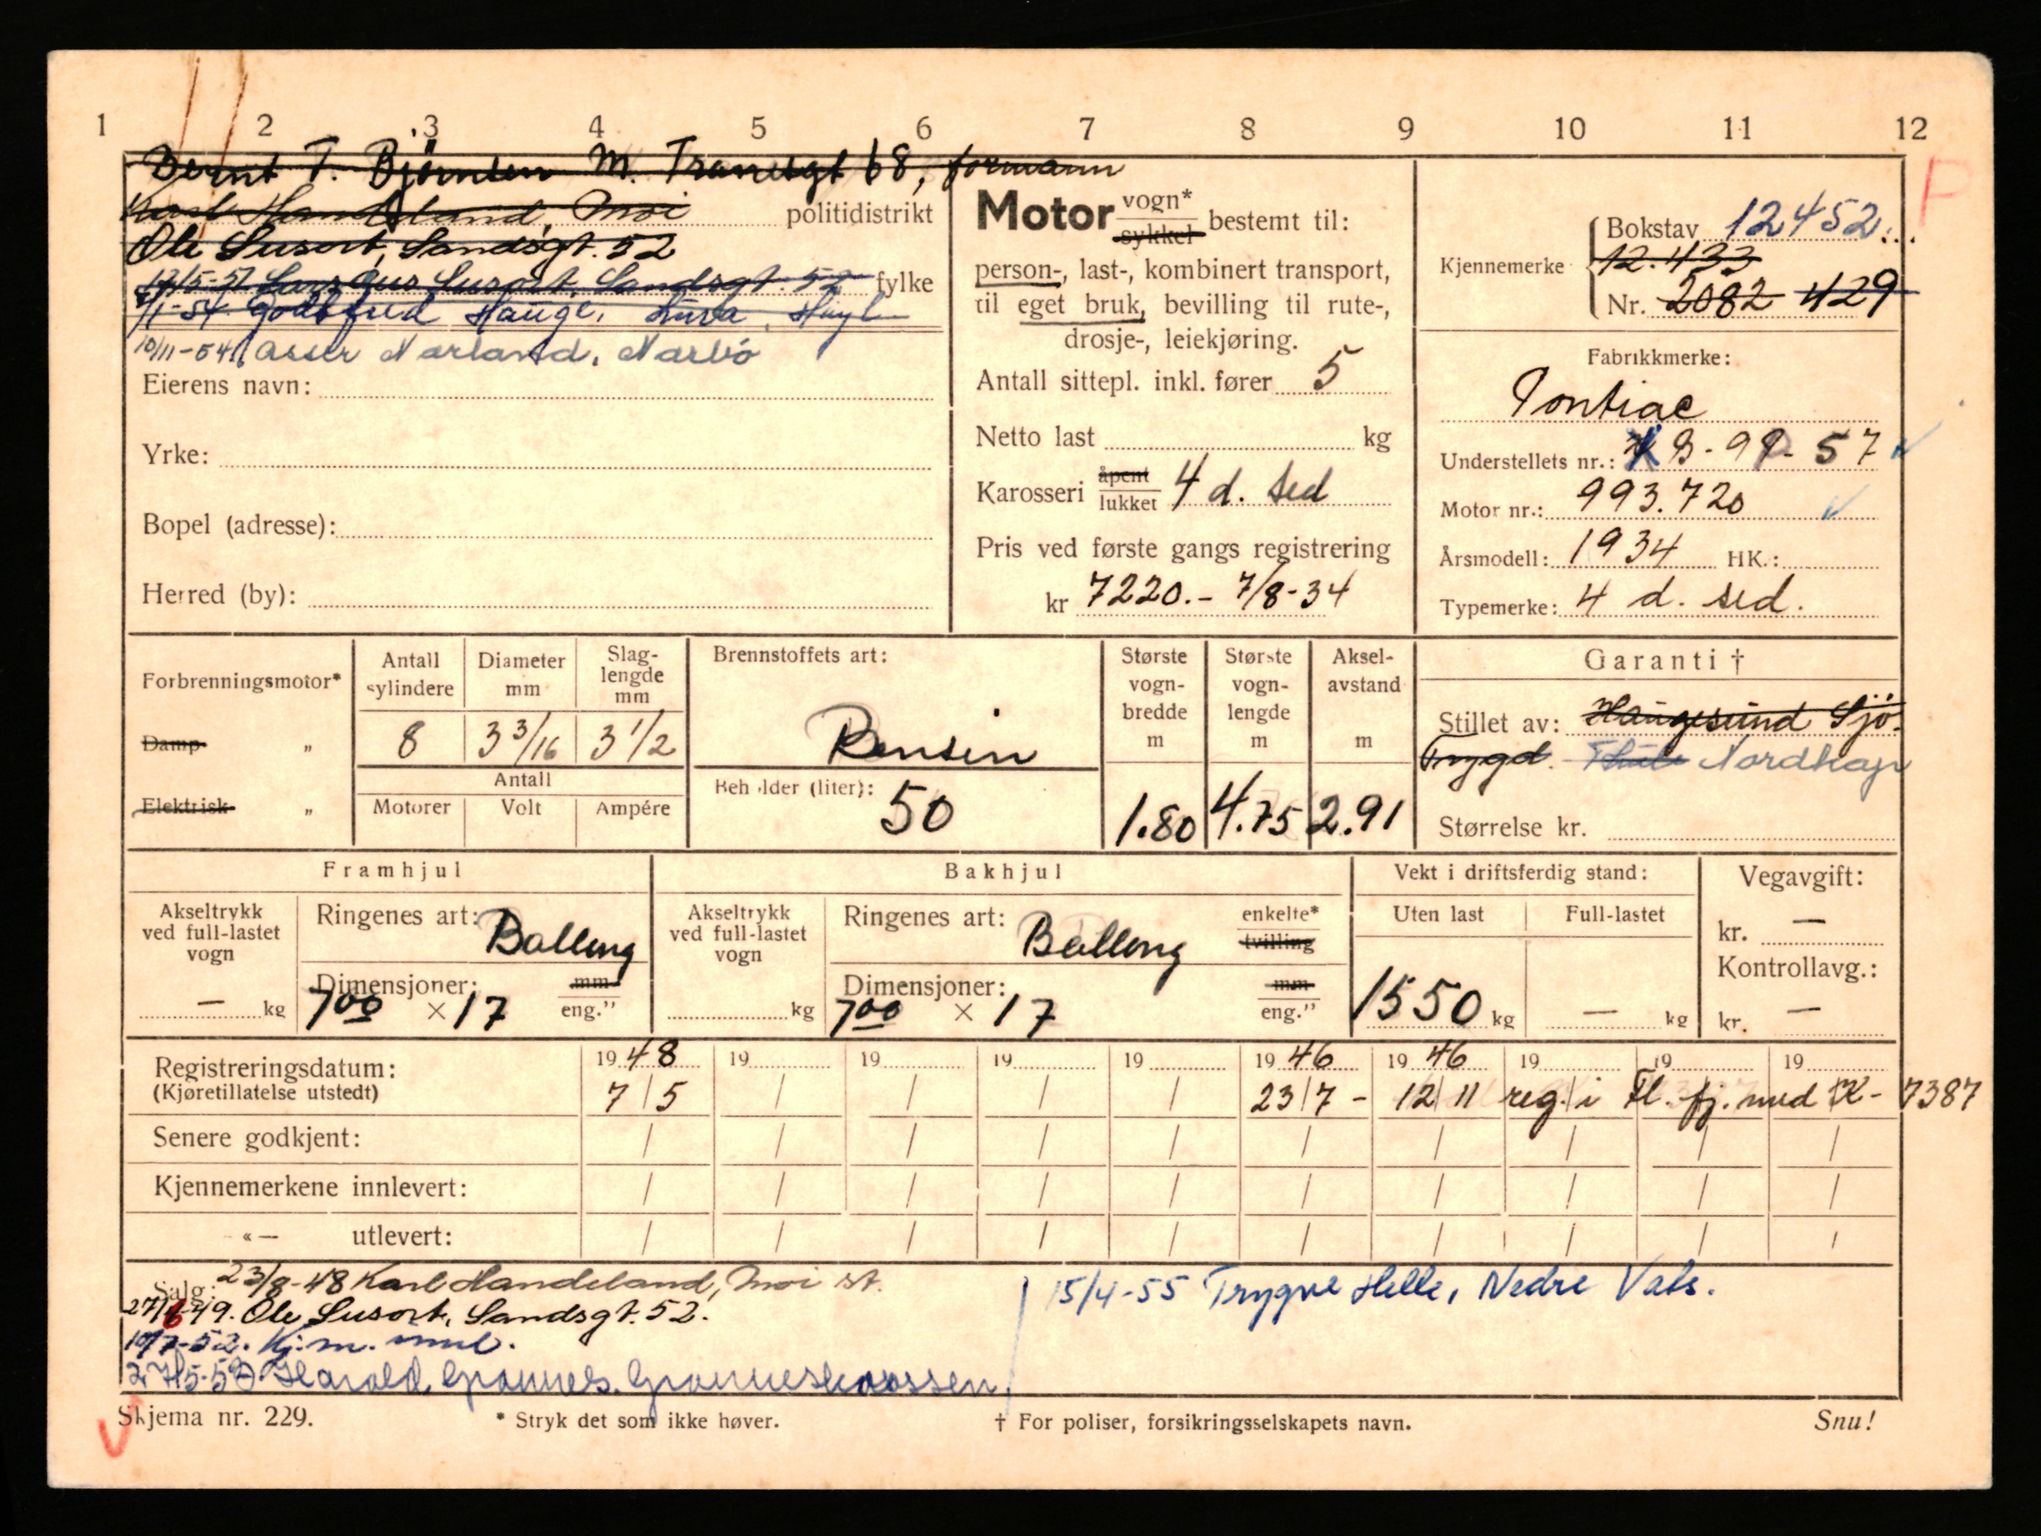 1 2 3 4 5 6 7 8 9 10 11 12
P
Bernt T. Bjørnsen M. Tranesgt 68, formann
Karl Handeland, Moi politidistrikt
Ole Susort, Sandsgt. 52
12/5-52 Lars Aus Susort, Sandsgt 52 fylke
9/1-54 Godtfred Hauge,
10/11-54. Asser Narland, Nærbö
Eierens navn:
Yrke:
Bopel (adresse):
Herred (by):
Motor vogn* sykkel bestemt til:
person-, last-, kombinert transport,
til eget bruk, bevilling til rute-,
drosje-, leiekjøring.
Antall sittepl. inkl. fører 5
Netto last kg
Karosseri åpent lukket 4 d. sed
Pris ved første gangs registrering
kr 7220.- 7/8-34
Kjennemerke
Bokstav 12452
12.433
Nr. 2082 429
Fabrikkmerke:
Pontiac
Understellets nr.: B-91-57
Motor nr.: 993.720
Årsmodell: 1934 HK.:
Typemerke: 4 d. sed.
Forbrenningsmotor*
Damp „
Elektrisk „
Antall sylindere
8
Diameter mm
3 3/16
Slaglengde mm
3 1/2
Antall
Motorer Volt Ampére
Brennstoffets art:
Bensin
Beholder (liter):
50
Største vognbredde m
1.80
Største vognlengde m
4.75
Akselavstand m
2.91
Garanti †
Stillet av: Haugesund Sjö-
Trygd. Nordkap
Størrelse kr.
Framhjul
Akseltrykk ved full-lastet vogn
— kg
Ringenes art: Ballong
Dimensjoner: mm
700 × 17 eng."
Bakhjul
Akseltrykk ved full-lastet vogn
kg
Ringenes art: Ballong enkelte* tvilling
Dimensjoner: mm
700 × 17 eng."
Vekt i driftsferdig stand:
Uten last Full-lastet
1550 kg — kg
Vegavgift:
kr. —
Kontrollavg.:
kr. —
Registreringsdatum: 19 48 19 19 19 19 19 46 19 46 19 19 19
(Kjøretillatelse utstedt) 7/5 / / / / 23/7 - 12/11 reg. i Fl. fj. med K- 7387
Senere godkjent: / / / / / / / / / /
Kjennemerkene innlevert: / / / / / / / / / /
«— utlevert: / / / / / / / / / /
Salg: 23/8-48 Karl Handeland, Moi st.
27/6-49. Ole Susort, Sandsgt. 52.
10/7-52. Kj.m. innl.
27/5-52 Harald Grønnes.
15/4-55 Trygve Helle, Nedre Vats.
Skjema nr. 229. * Stryk det som ikke høver. † For poliser, forsikringsselskapets navn. Snu!